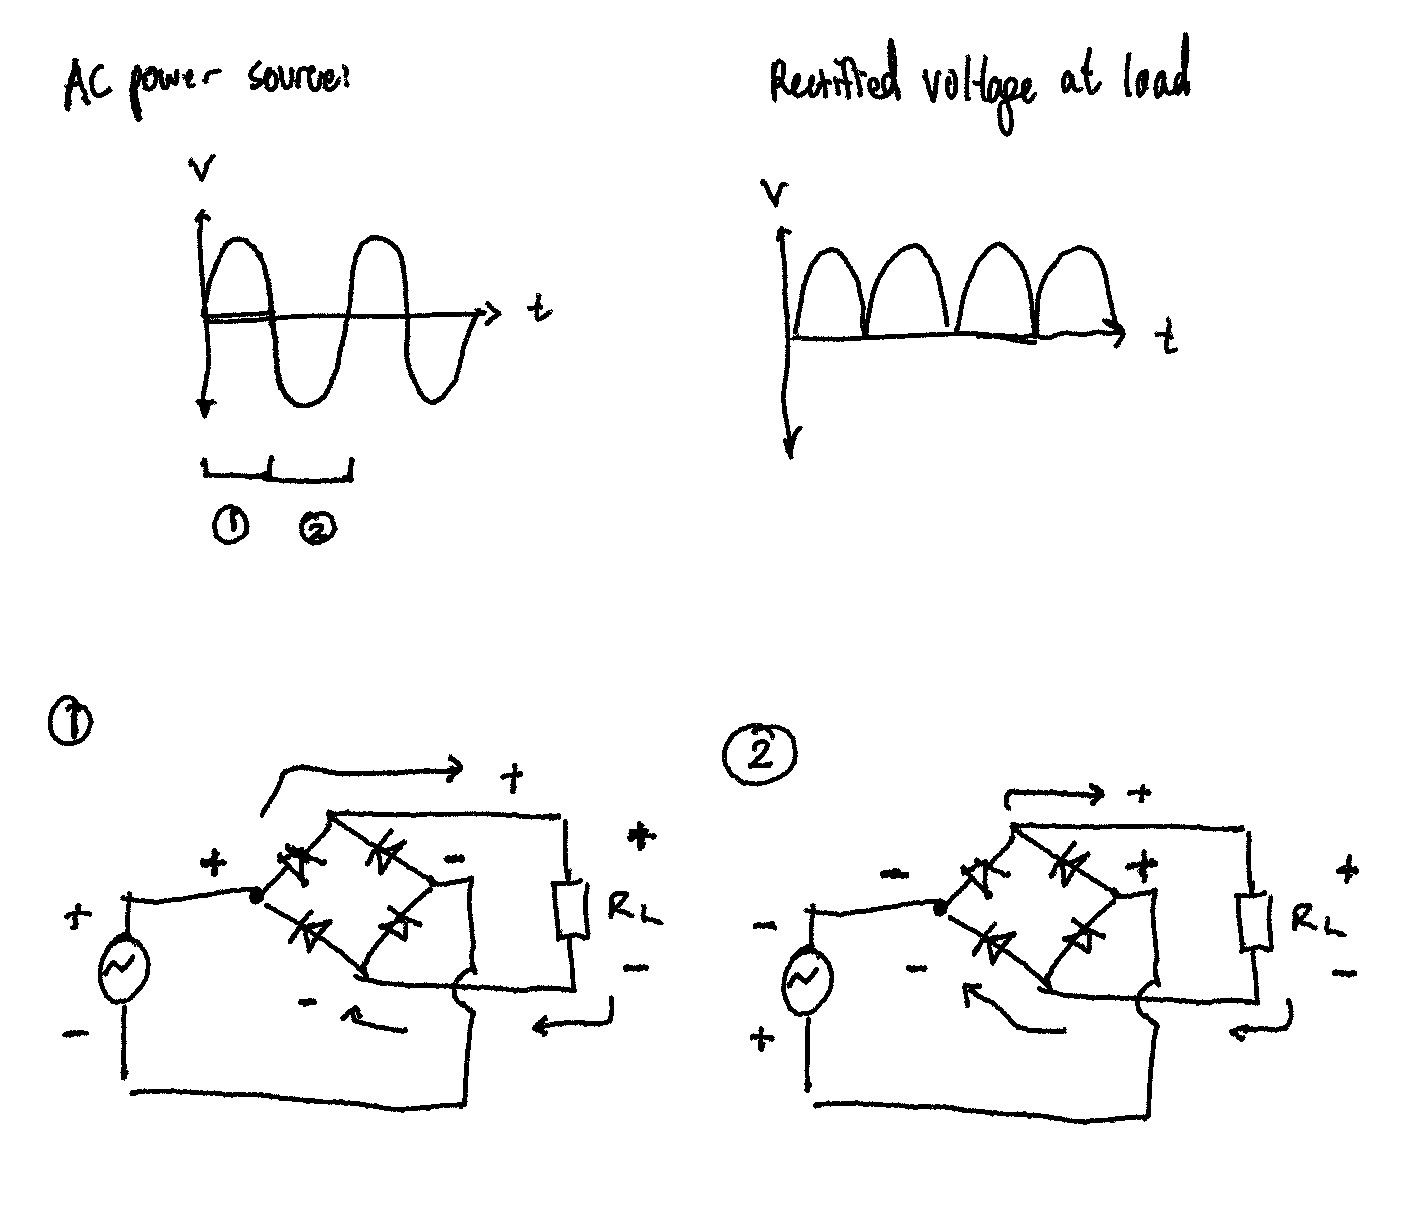 AC power source:
Rectified voltage at load
V
V
t
t
①
②
①
②
+
+
+
+
-
+
+
+
-
-
+
R_L
-
R_L
-
-
-
-
-
+